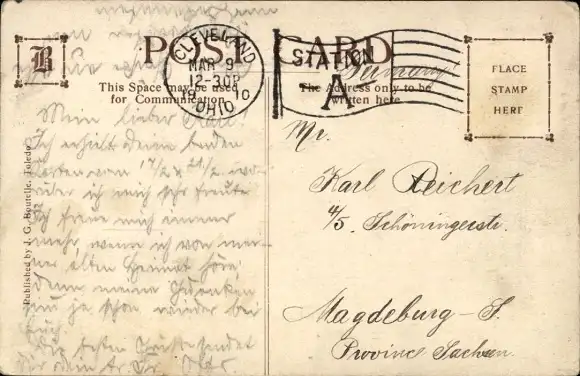 POST CARD
B
CLEVELAND
MAR 9
12-30P
19 10
OHIO
STATION
A
Germany
This Space may be used
for Communication.
The Address only to be
written here
PLACE
STAMP
HERE
Published by J. G. Boutelle, Toledo
Mein lieber Karl!
Ich erhielt deine beiden
Karten vom 17/2 & 21/2 wo-
rüber ich mich sehr freute
Ich freue mich immer
mehr, wenn ich von mei-
ner alten Heimat höre,
denn meine Gedanken
sind ja schon wieder bei
Euch.
Die besten Grüße sendet
Dir dein
Mr.
Karl Reichert
4/5. Schöningerstr.
Magdeburg - S.
Province Sachsen.